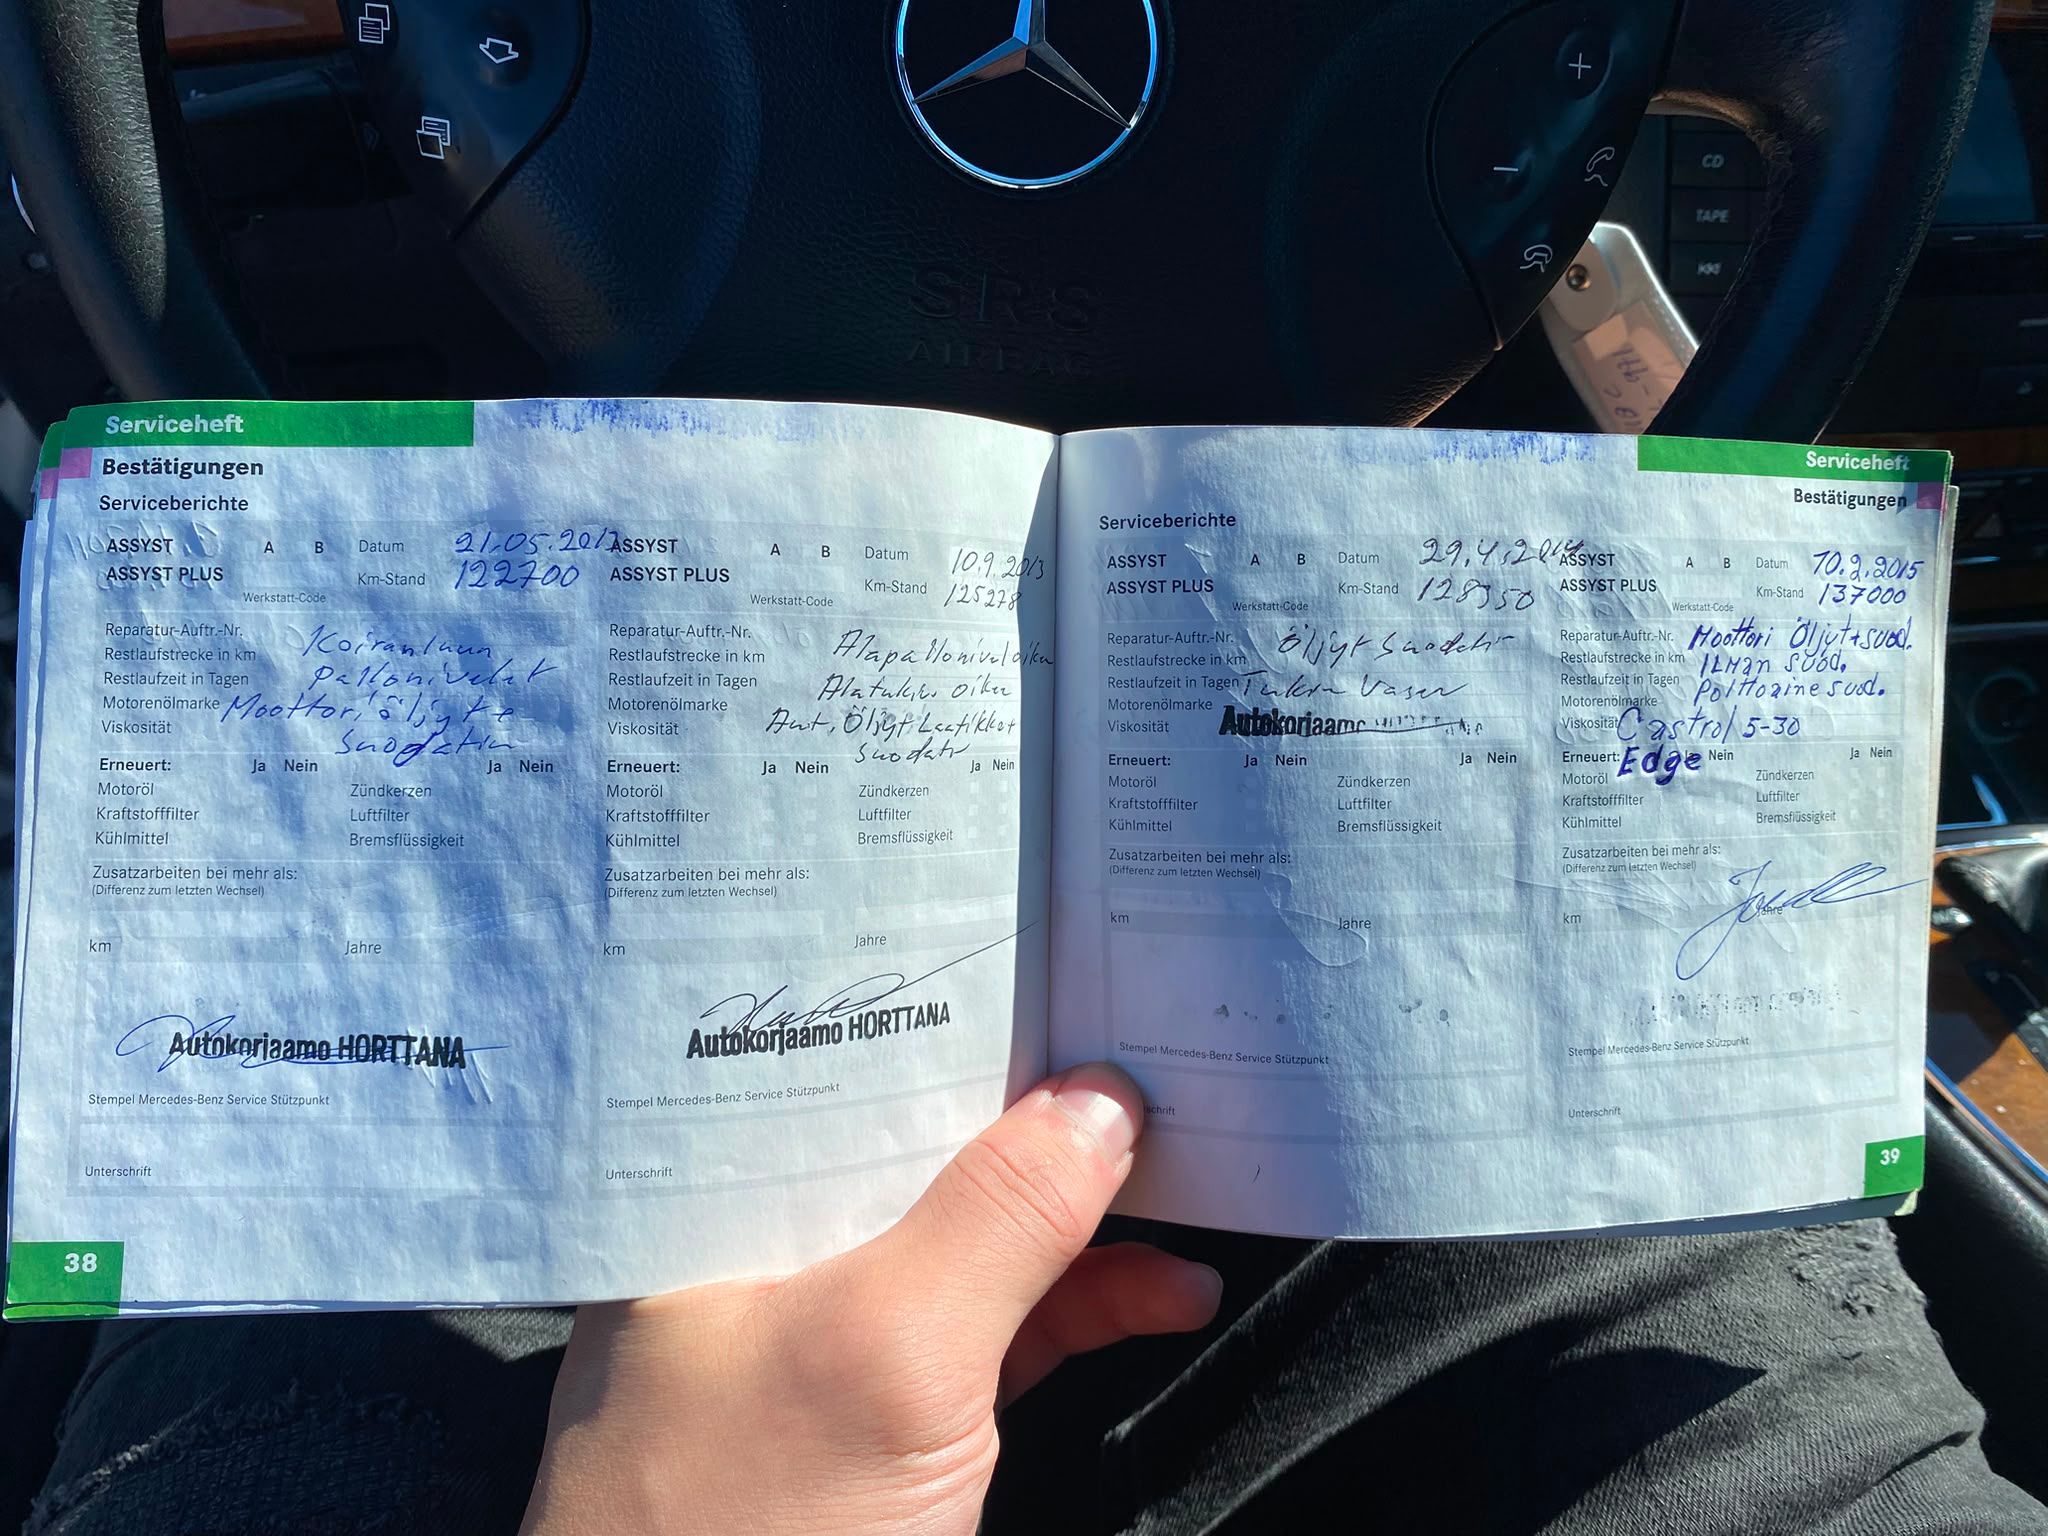 CD
TAPE
SRS
AIRBAG
Serviceheft
Bestätigungen
Serviceberichte
ASSYST A B Datum 21.05.2013
ASSYST PLUS Km-Stand 122700
Werkstatt-Code
Reparatur-Auftr.-Nr. Koiranluun
Restlaufstrecke in km pallonivelet
Restlaufzeit in Tagen
Motorenölmarke Moottori öljyt +
Viskosität suodatin
Erneuert: Ja Nein Ja Nein
Motoröl Zündkerzen
Kraftstofffilter Luftfilter
Kühlmittel Bremsflüssigkeit
Zusatzarbeiten bei mehr als:
(Differenz zum letzten Wechsel)
km Jahre
Autokorjaamo HORTTANA
Stempel Mercedes-Benz Service Stützpunkt
Unterschrift
38
ASSYST A B Datum 10.9.2013
ASSYST PLUS Km-Stand 125278
Werkstatt-Code
Reparatur-Auftr.-Nr. Alapallonivel oikea
Restlaufstrecke in km
Restlaufzeit in Tagen oikea
Motorenölmarke Aut. Öljyt Laatikkot
Viskosität suodatin
Erneuert: Ja Nein Ja Nein
Motoröl Zündkerzen
Kraftstofffilter Luftfilter
Kühlmittel Bremsflüssigkeit
Zusatzarbeiten bei mehr als:
(Differenz zum letzten Wechsel)
km Jahre
Autokorjaamo HORTTANA
Stempel Mercedes-Benz Service Stützpunkt
Unterschrift
Serviceheft
Bestätigungen
Serviceberichte
ASSYST A B Datum 29.4.2014
ASSYST PLUS Km-Stand 128350
Werkstatt-Code
Reparatur-Auftr.-Nr. Öljyt Suodatin
Restlaufstrecke in km
Restlaufzeit in Tagen Vasen
Motorenölmarke
Viskosität Autokorjaamo
Erneuert: Ja Nein Ja Nein
Motoröl Zündkerzen
Kraftstofffilter Luftfilter
Kühlmittel Bremsflüssigkeit
Zusatzarbeiten bei mehr als:
(Differenz zum letzten Wechsel)
km Jahre
Stempel Mercedes-Benz Service Stützpunkt
schrift
ASSYST A B Datum 10.2.2015
ASSYST PLUS Km-Stand 137000
Werkstatt-Code
Reparatur-Auftr.-Nr. Moottori Öljyt+suod.
Restlaufstrecke in km ILMan suod.
Restlaufzeit in Tagen Polttoaine suod.
Motorenölmarke
Viskosität Castrol 5-30
Erneuert: Edge Ja Nein Ja Nein
Motoröl Zündkerzen
Kraftstofffilter Luftfilter
Kühlmittel Bremsflüssigkeit
Zusatzarbeiten bei mehr als:
(Differenz zum letzten Wechsel)
km Jahre
Stempel Mercedes-Benz Service Stützpunkt
Unterschrift
39